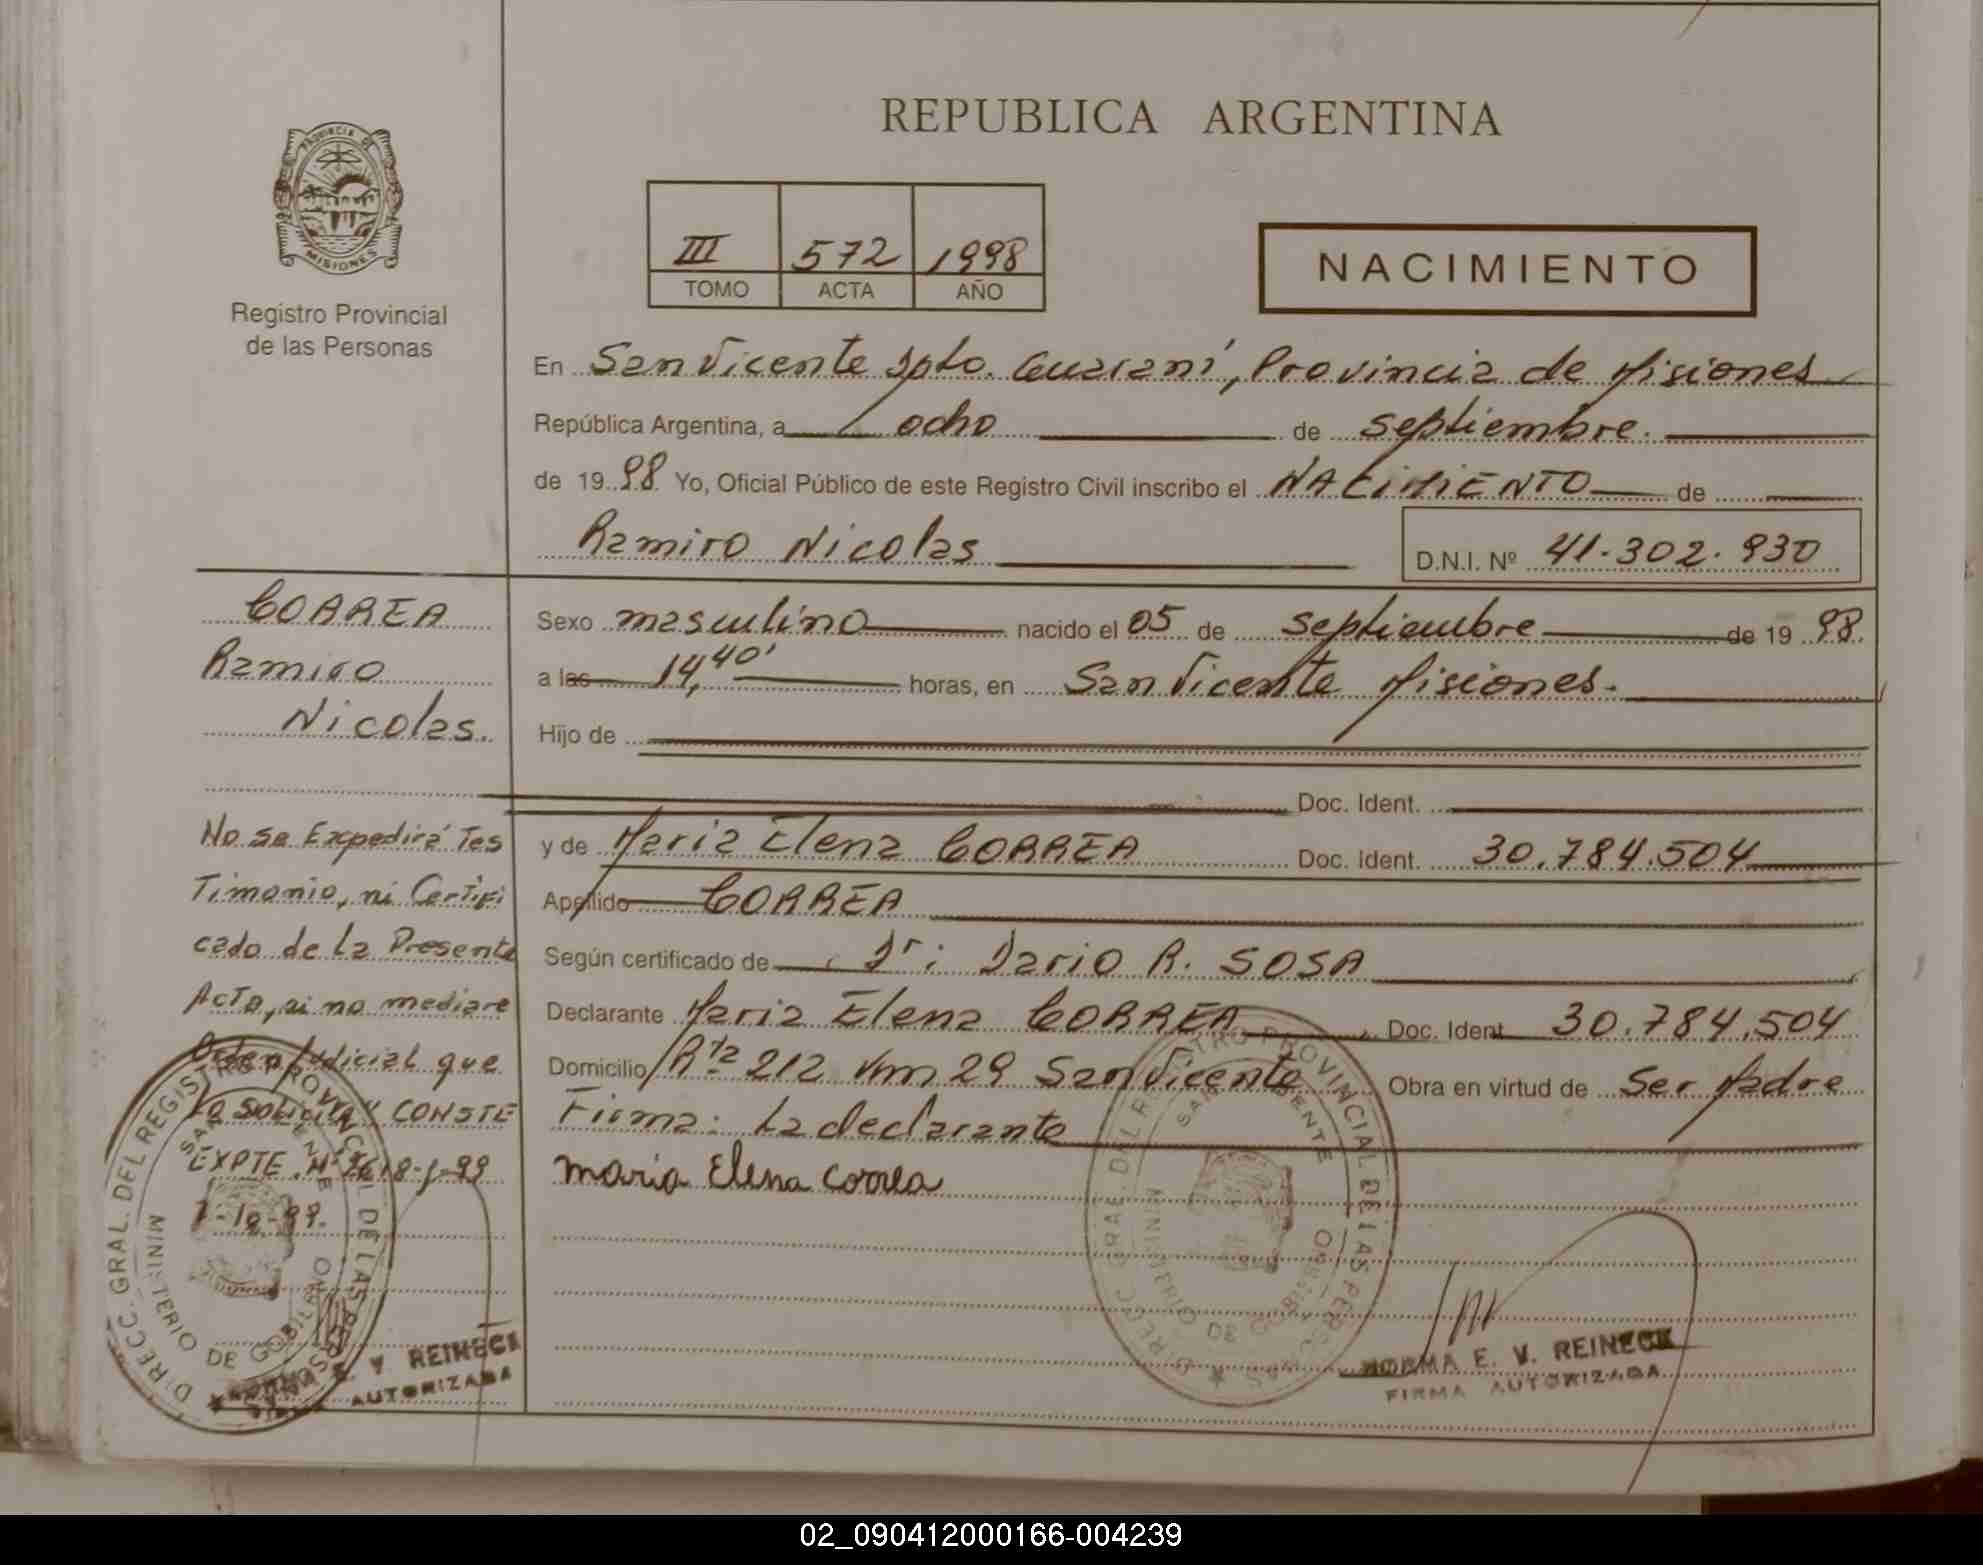 REPUBLICA ARGENTINA
PROVINCIA DE
MISIONES
Registro Provincial
de las Personas
III 572 1998
TOMO ACTA AÑO
NACIMIENTO
En San Vicente Dpto. Guaraní, Provincia de Misiones
República Argentina, a ocho de septiembre.
de 1998 Yo, Oficial Público de este Registro Civil inscribo el NACIMIENTO de
Ramiro Nicolas D.N.I. Nº 41.302.930
CORREA
Ramiro
Nicolas.
Sexo masculino nacido el 05 de septiembre de 1998.
a las 14,40' horas, en San Vicente Misiones.
Hijo de
Doc. Ident.
y de Maria Elena CORREA Doc. Ident. 30.784.504
Apellido CORREA
Según certificado de Dr: Dario R. SOSA
Declarante Maria Elena CORREA Doc. Ident. 30.784.504
Domicilio Rta 212 Km 29 San Vicente Obra en virtud de Ser Madre
Firma: La declarante
maria Elena correa
No se Expedirá Tes
Timonio, ni Certifi
cado de la Presente
Acta, si no mediare
Orden Judicial que
Lo Solicite y CONSTE
EXPTE. Nº
7-10-99.
DIRECC. GRAL. DEL REGISTRO PROVINCIAL DE LAS PERSONAS
SAN VICENTE
MINISTERIO DE GOBIERNO
NORMA E. V. REINECK
FIRMA AUTORIZADA
DIRECC. GRAL. DEL REGISTRO PROVINCIAL DE LAS PERSONAS
SAN VICENTE
MINISTERIO DE GOBIERNO
NORMA E. V. REINECK
FIRMA AUTORIZADA
02_090412000166-004239